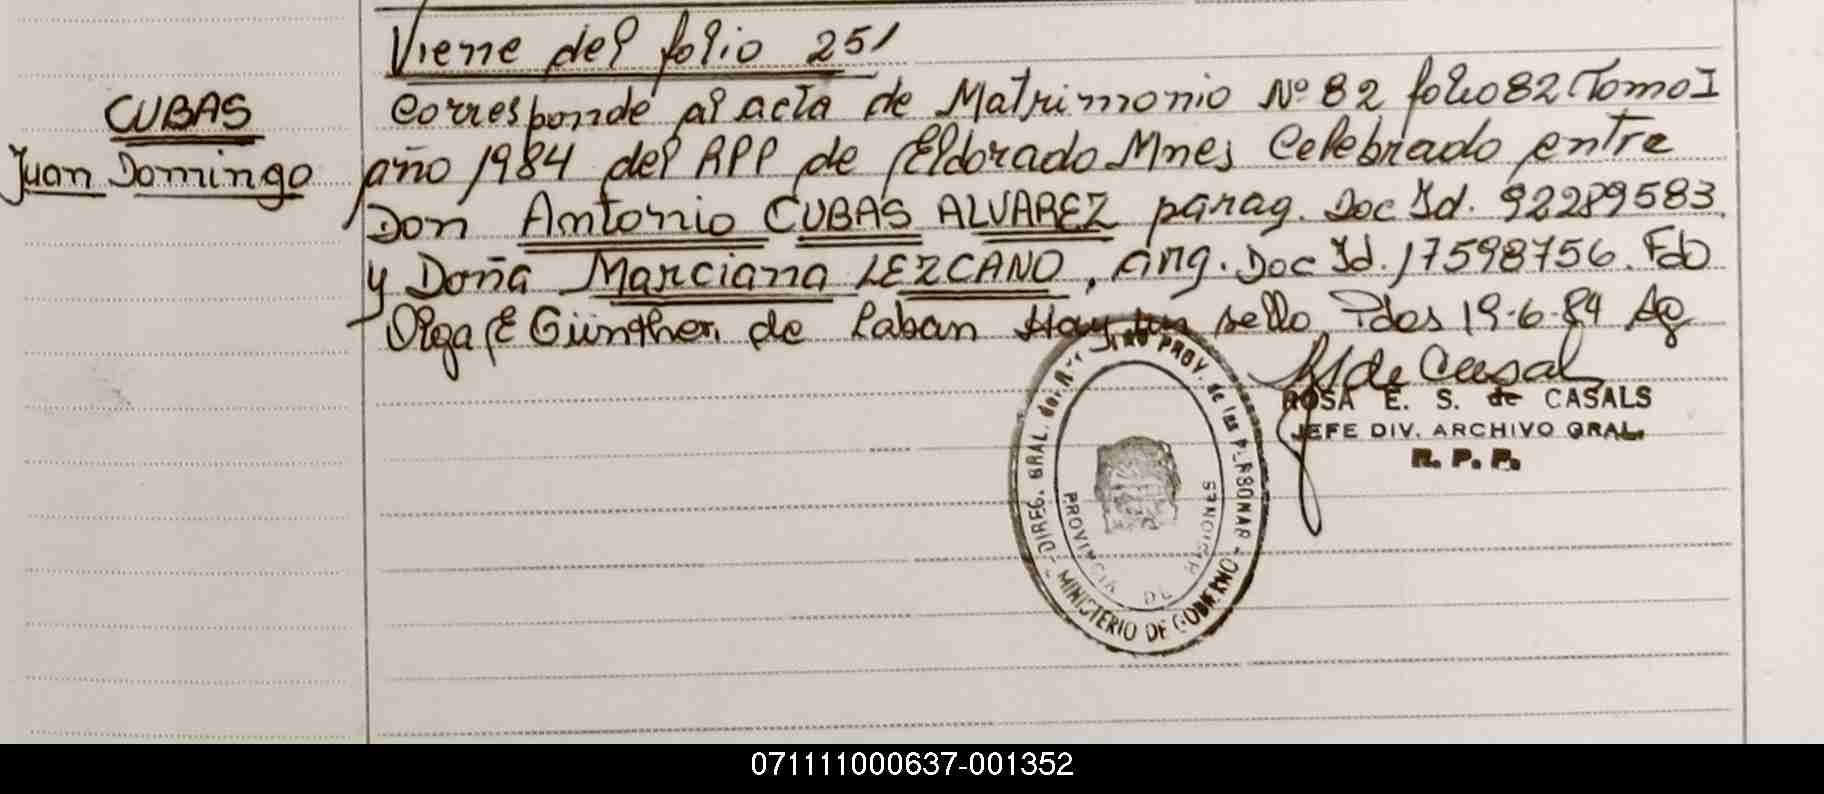 Viene del folio 251
CUBAS
Juan Domingo
Corresponde al acta de Matrimonio Nº 82 folio 82 Tomo I
año 1984 del RPP de Eldorado Mnes Celebrado entre
Don Antonio CUBAS ALVAREZ parag. Doc Id. 92289583
y Doña Marciana LEZCANO, Arg. Doc Id. 17598756. Fdo
Olga E Günther de Laban Hay un sello Pdos 19-6-84
ROSA E. S. de CASALS
JEFE DIV. ARCHIVO GRAL.
R. P. P.
DIREG. GRAL. del PROV. de las PERSONAS
MINISTERIO DE GOBIERNO
PROVINCIA DE MISIONES
071111000637-001352